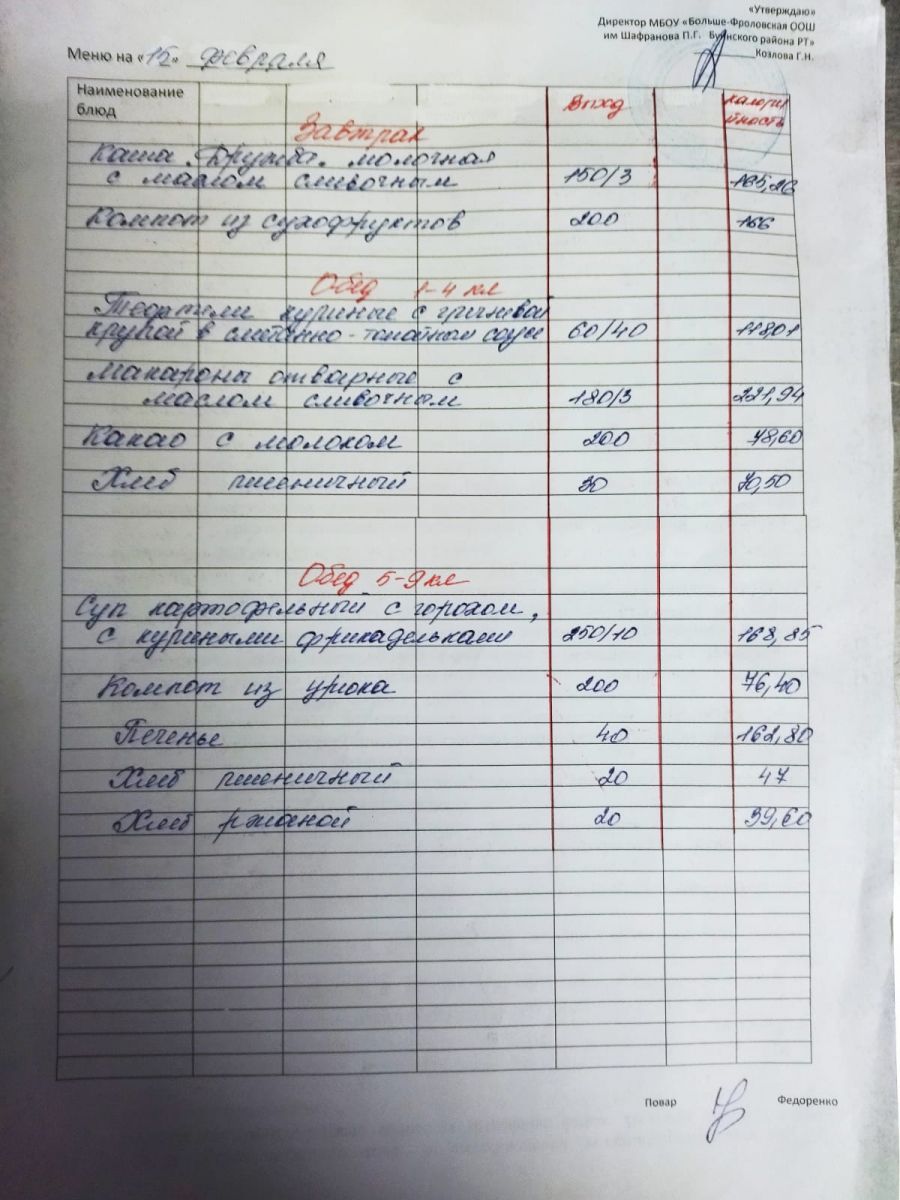 «Утверждаю»
Директор МБОУ «Больше-Фроловская ООШ
им Шафранова П.Г. Буинского района РТ»
Козлова Г.Н.
Меню на «15» февраля
Наименование блюд Выход калорийность
Завтрак
Каша "Дружба" молочная
с маслом сливочным 150/3 165,26
Компот из сухофруктов 200 166
Обед 1-4 кл
Тефтели куриные с гречневой
крупой в сметанно-томатном соусе 60/40 118,01
Макароны отварные с
маслом сливочным 180/3 221,94
Какао с молоком 200 78,60
Хлеб пшеничный 30 70,50
Обед 5-9 кл
Суп картофельный с горохом,
с куриными фрикадельками 250/10 168,85
Компот из урюка 200 76,40
Печенье 40 162,80
Хлеб пшеничный 20 47
Хлеб ржаной 20 39,60
Повар Федоренко